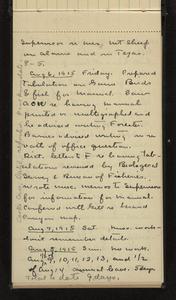 Supervisor re men, not chief
in alumni and in Texas.
8-5.
Aug 6, 1915 Friday. Prepared
tabulation on Game Birds
& fish for manual. Saw
AOW re having manual
printed or multigraphed and
he advised writing Forester.
Barnes advised waiting re re-
sult of office question.
Sent letters to F re having tab-
ulation reviewed by Biological
Survey & Bureau of Fisheries.
Wrote misc. memos to Supervisors
for information for manual.
Conferred with Hill re Grand
Canyon map.
Aug 7, 1915 Sat. misc. work-
submit remainder details.
Aug 8, 1915 Sun. No work.
Aug 9, 10, 11, 12, 13, and 1/2
of Aug 14 annual leave. 5 days
to date 9 days.